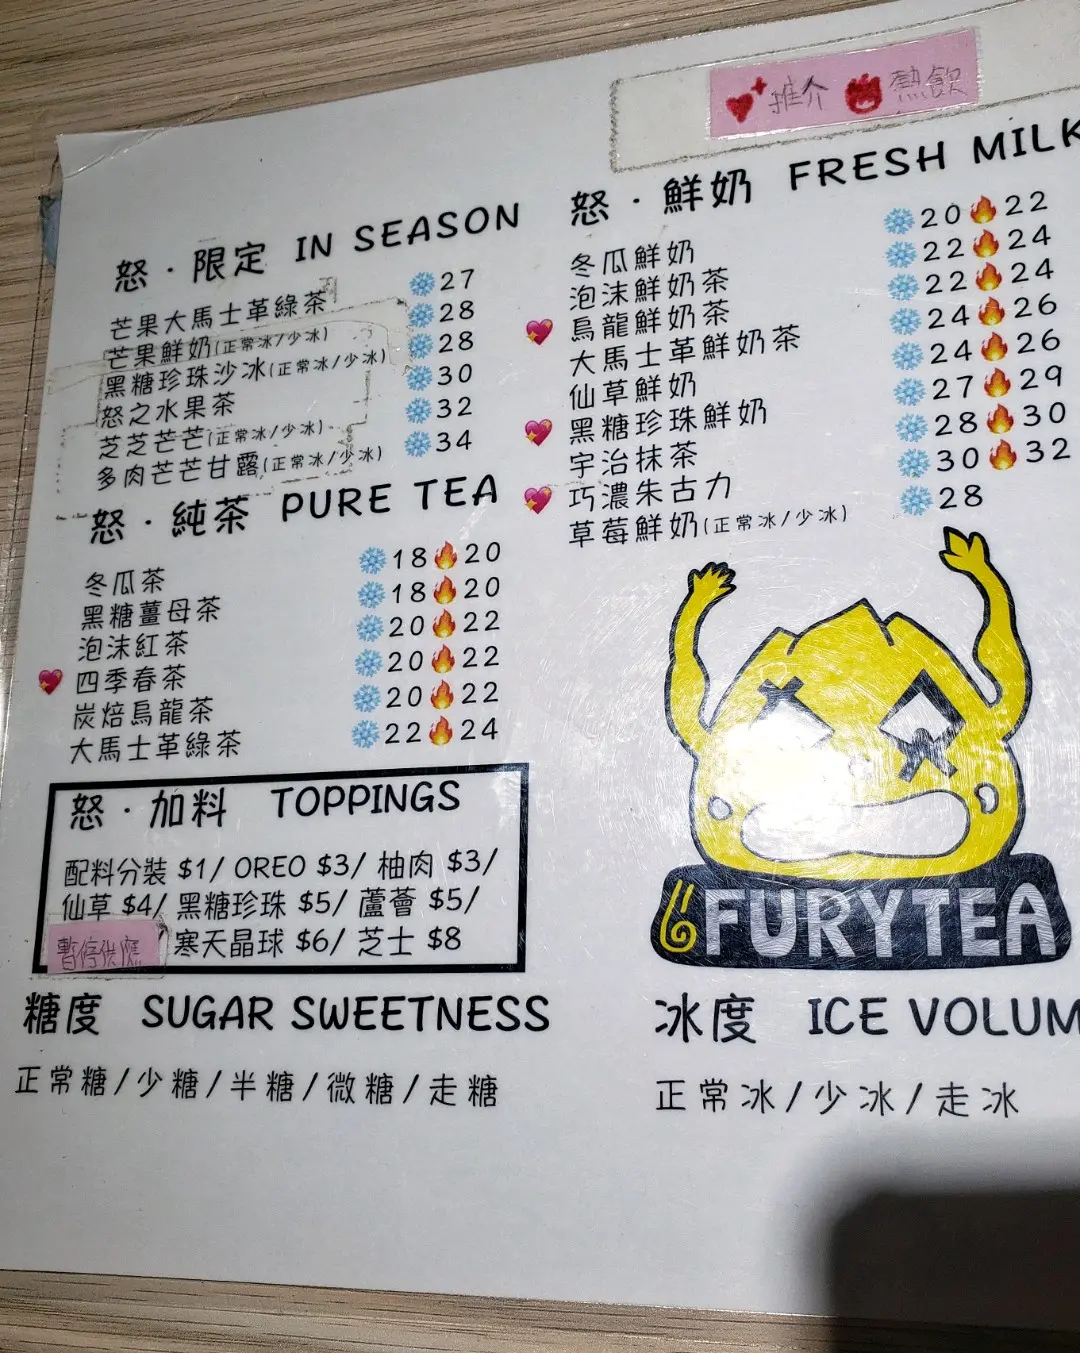 推介 熱飲
怒·限定 IN SEASON
芒果大馬士革綠茶 27
芒果鮮奶(正常冰/少冰) 28
黑糖珍珠沙冰(正常冰/少冰) 28
怒之水果茶 30
芝芝芒芒(正常冰/少冰) 32
多肉芒芒甘露(正常冰/少冰) 34
怒·純茶 PURE TEA
冬瓜茶 18 20
黑糖薑母茶 18 20
泡沫紅茶 20 22
四季春茶 20 22
炭焙烏龍茶 20 22
大馬士革綠茶 22 24
怒·加料 TOPPINGS
配料分裝 $1/ OREO $3/ 柚肉 $3/
仙草 $4/ 黑糖珍珠 $5/ 蘆薈 $5/
暫停供應 寒天晶球 $6/ 芝士 $8
糖度 SUGAR SWEETNESS
正常糖/少糖/半糖/微糖/走糖
怒·鮮奶 FRESH MILK
冬瓜鮮奶 20 22
泡沫鮮奶茶 22 24
烏龍鮮奶茶 22 24
大馬士革鮮奶茶 24 26
仙草鮮奶 24 26
黑糖珍珠鮮奶 27 29
宇治抹茶 28 30
巧濃朱古力 30 32
草莓鮮奶(正常冰/少冰) 28
FURYTEA
冰度 ICE VOLUM
正常冰/少冰/走冰